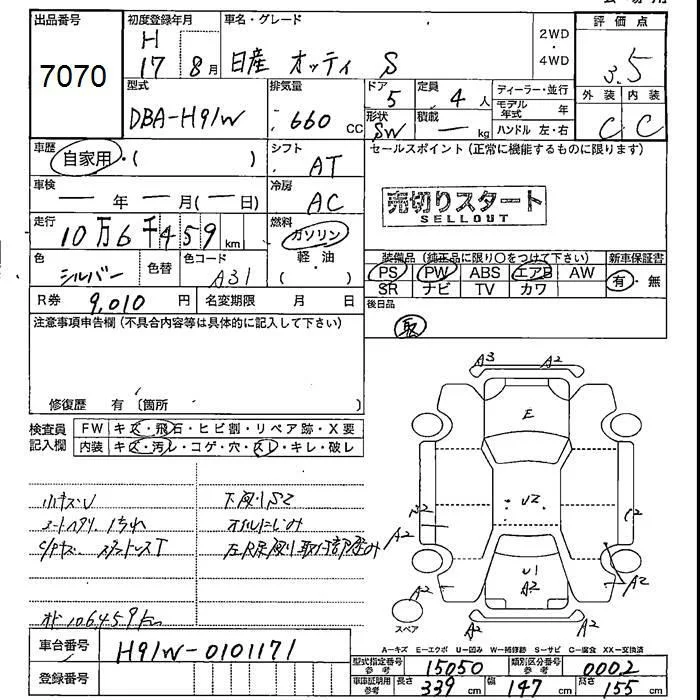 出品番号 初度登録年月 車名・グレード 評価点
7070 H 17 8月 日産 オッティ S 2WD・4WD 3.5
型式 排気量 ドア 定員 ディーラー・並行 外装 内装
DBA-H91W 660 CC 5 4人 モデル年式 年 C C
形状 SW 積載 ー kg ハンドル 左・右
車歴 自家用・( ) シフト AT セールスポイント(正常に機能するものに限ります)
車検 ー年ー月(ー日) 冷房 AC
売切りスタート
SELLOUT
走行 10万6千459km 燃料 ガソリン
軽油
( )
色 シルバー 色替 色コード A31
装備品(純正品に限り○をつけて下さい) 新車保証書
PS PW ABS エアB AW 有・無
SR ナビ TV カワ
R券 9,010円 名変期限 月 日
後日品
取
注意事項申告欄(不具合内容等は具体的に記入して下さい)
修復歴 有〔箇所 〕
検査員記入欄 FW キズ・飛石・ヒビ割・リペア跡・X要
内装 キズ・汚レ・コゲ・穴・スレ・キレ・破レ
小キズU 下廻りS2
オイルにじみ
オド106459km
A3 A2
E
U2
A2 A2
U1
A2
A2 A2
A2 A2
スペア
A-キズ E-エクボ U-凹み W-補修跡 S-サビ C-腐食 XX-交換済
車台番号 H91W-0101171
登録番号
型式指定番号 参考 15050 類別区分番号 参考 0002
車庫証明用 参考 長さ 339cm 幅 147cm 高さ 155cm